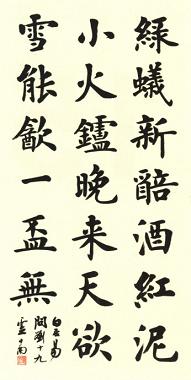 綠蟻新醅酒紅泥
小火鑪晚来天欲
雪能㱃一盃無
白居易
問劉十九